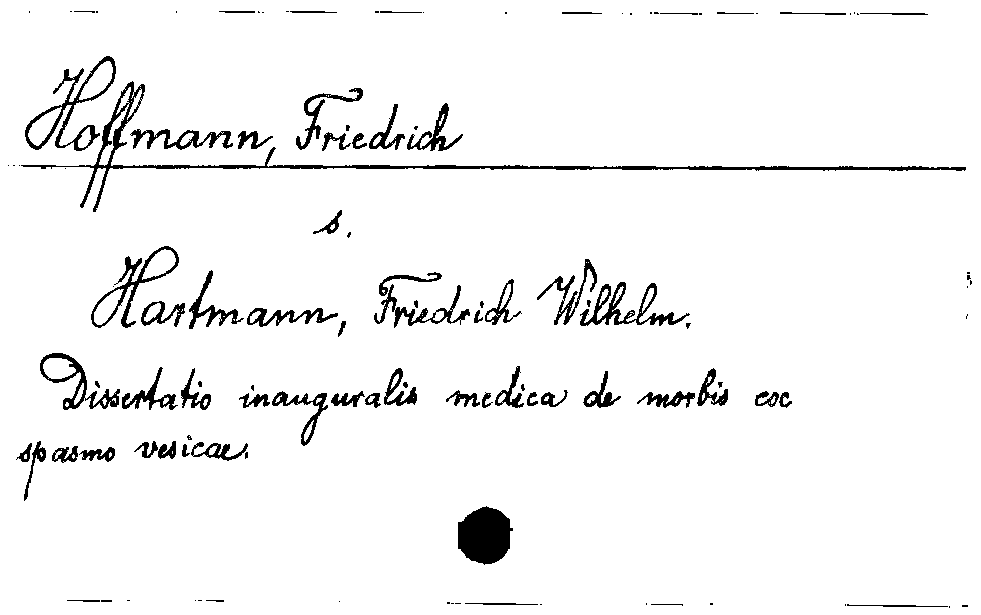 Hoffmann, Friedrich
s.
Hartmann, Friedrich Wilhelm.
Dissertatio inauguralis medica de morbis coc
spasmo vesicae.